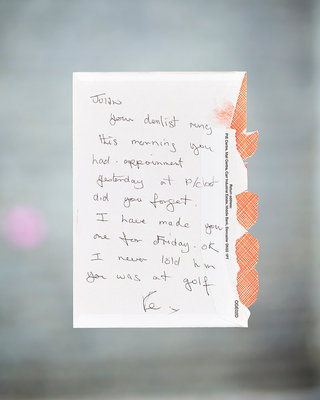 Julian
Your dentist rung
this morning you
had appointment
yesterday at
did you forget.
I have made you
one for Friday. OK
I never told him
you was at golf
Return address